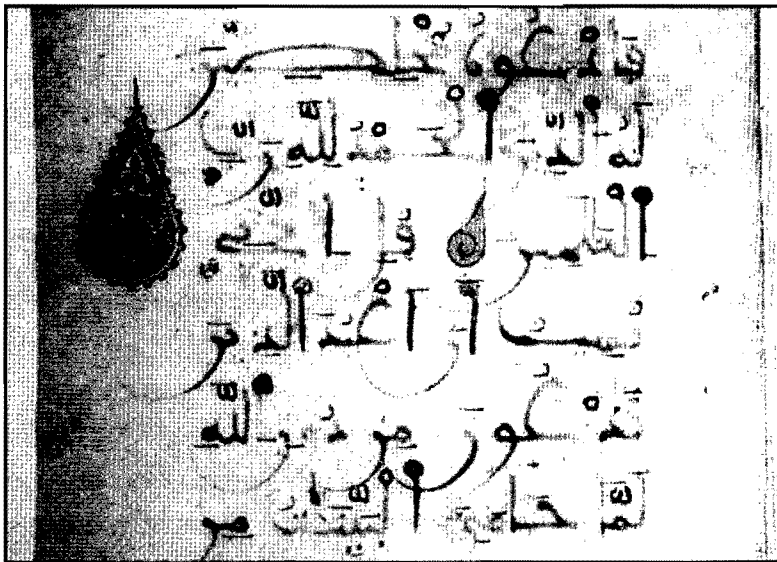 فادعوه مخلصين
له الدين الحمد لله رب
العلمين قل اني
نهيت ان اعبد الذين
تدعون من دون الله
لما جاءني البينت من